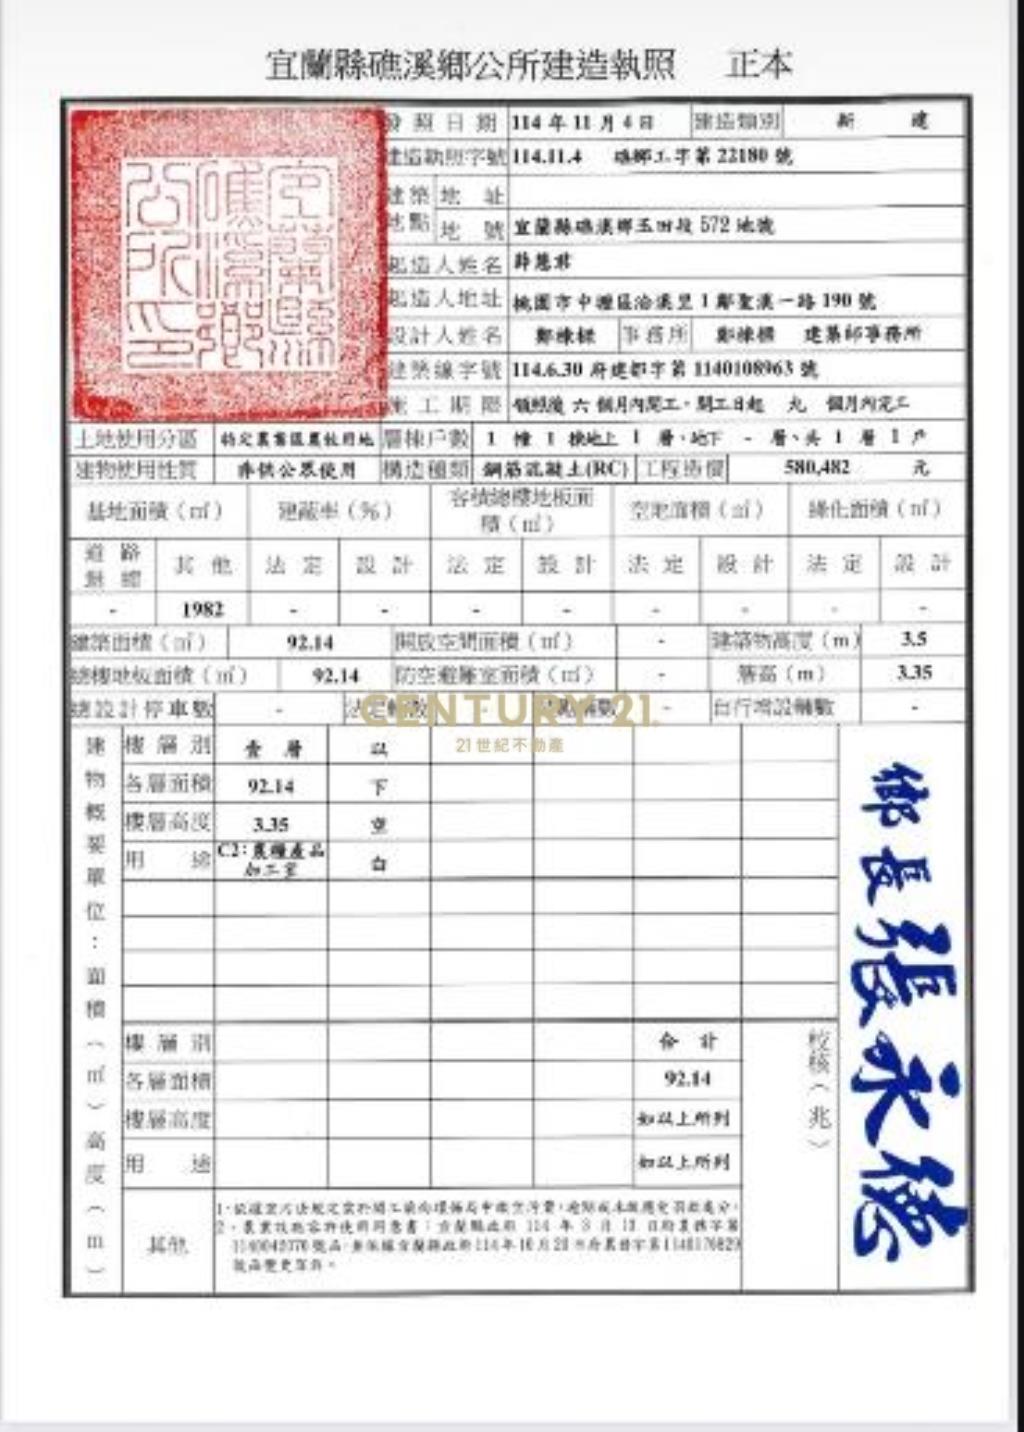 宜蘭縣礁溪鄉公所建造執照 正本
發照日期 114年11月4日 建造類別 新建
建造執照字號 114.11.4 礁鄉工字第22180號
建築地點 地址
地號 宜蘭縣礁溪鄉玉田段572地號
起造人姓名 薛慧君
起造人地址 桃園市中壢區洽溪里1鄰聖溪一路190號
設計人姓名 鄭棟樑 事務所 鄭棟樑 建築師事務所
建築線字號 114.6.30府建都字第1140108963號
施工期限 領照後六個月內開工,開工日起 九 個月內完工
土地使用分區 特定農業區農牧用地 層棟戶數 1 幢 1 棟地上 1 層、地下 - 層、共 1 層 1 戶
建物使用性質 非供公眾使用 構造種類 鋼筋混凝土(RC) 工程造價 580,482 元
基地面積(㎡) 建蔽率(%) 容積總樓地板面積(㎡) 空地面積(㎡) 綠化面積(㎡)
其他 法定 設計 法定 設計 法定 設計 法定 設計
- 1982 - - - - - - - -
建築面積(㎡) 92.14 開放空間面積(㎡) - 建築物高度(m) 3.5
總樓地板面積(㎡) 92.14 防空避難室面積(㎡) - 簷高(m) 3.35
總設計停車數 - 自行增設輛數 -
CENTURY 21.
21世紀不動產
建物概要單位:面積(㎡)高度(m)
樓層別 壹層 以
各層面積 92.14 下
樓層高度 3.35 空
用途 C2:農糧產品加工室 白
樓層別 合計
各層面積 92.14
樓層高度 如以上所列
用途 如以上所列
校核(兆)
其他
鄉長張永德
宜蘭縣礁溪鄉公所印